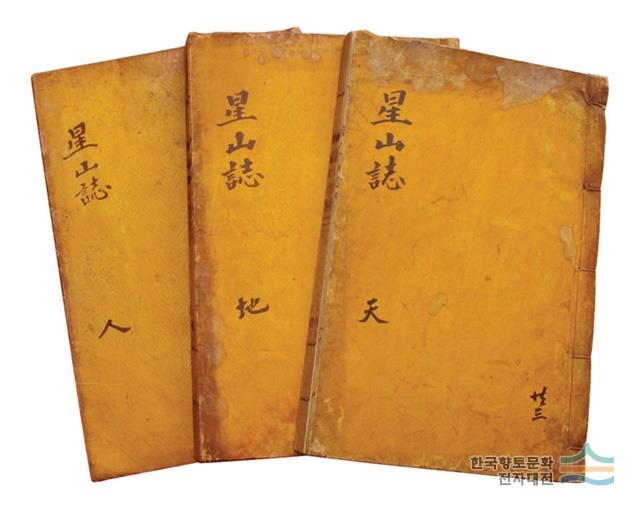 星山誌
天
廿三
星山誌
地
星山誌
人
한국향토문화
전자대전